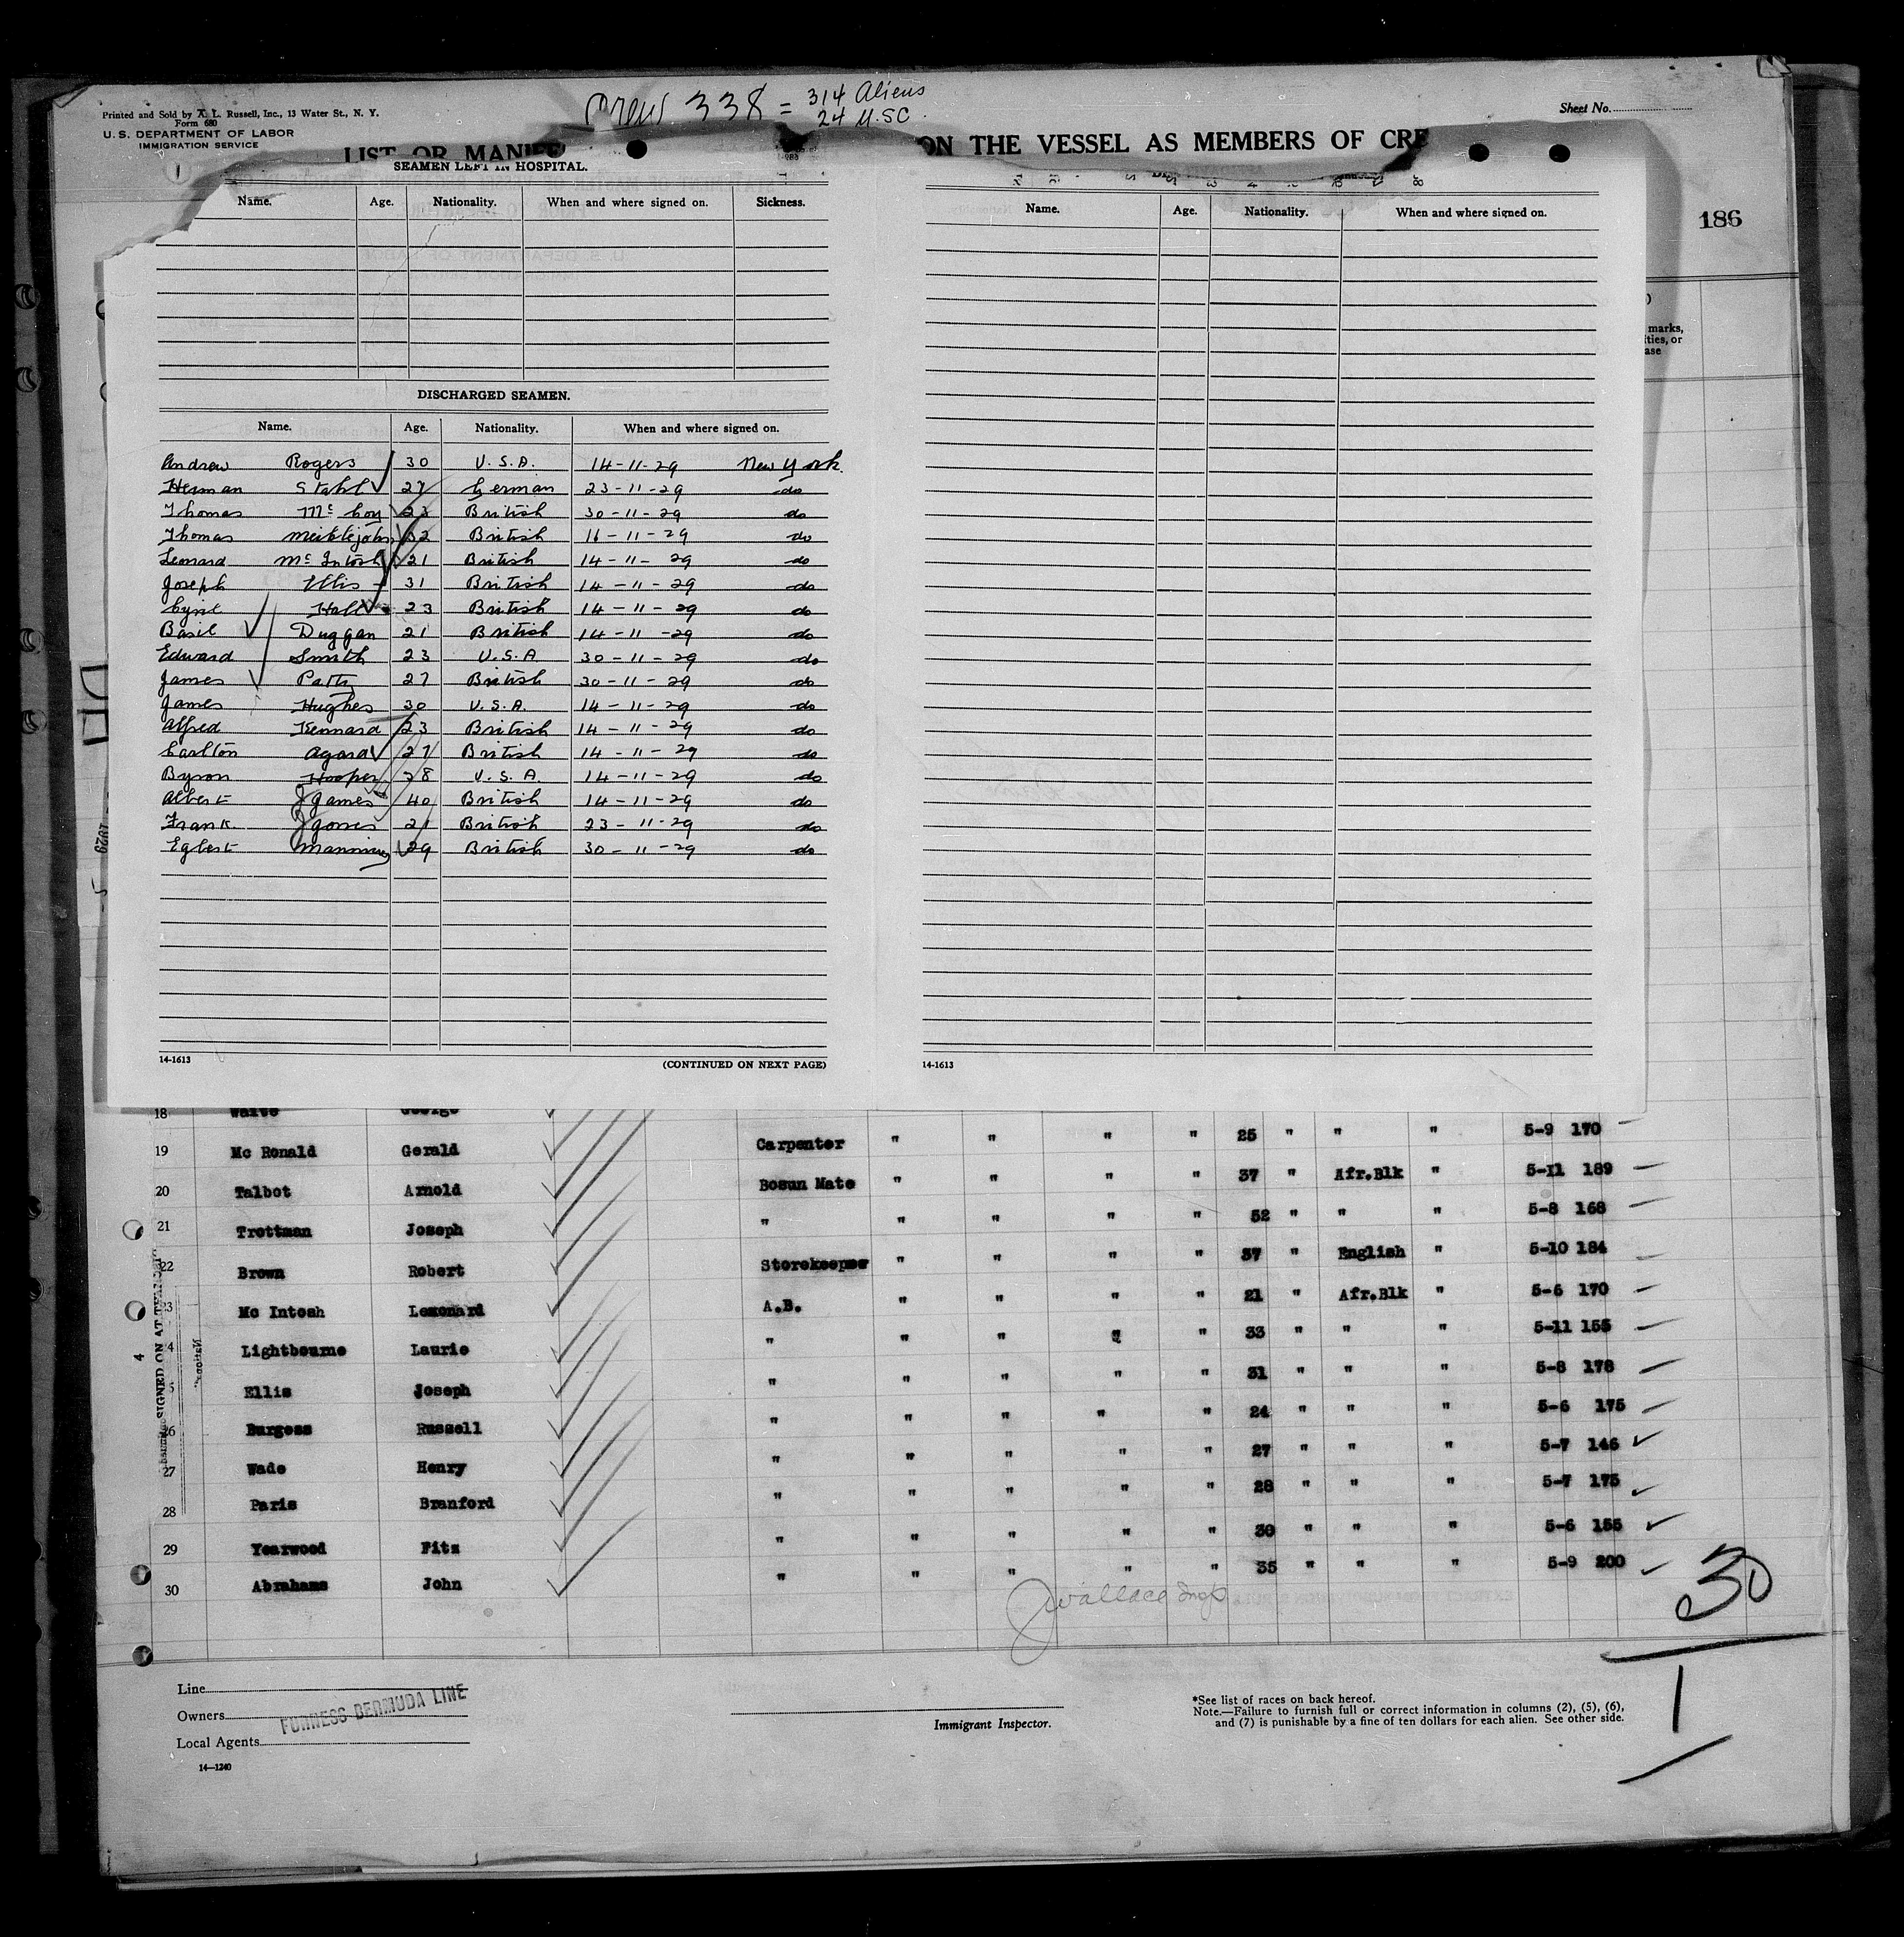 Printed and Sold by A. L. Russell, Inc., 13 Water St., N. Y.
Form 680
U.S. DEPARTMENT OF LABOR
IMMIGRATION SERVICE
Crew 338 = 314 Aliens
24 U.S.C.
Sheet No.
LIST OR MANIFE
ON THE VESSEL AS MEMBERS OF CRE
186
marks,
ities, or
ase
SEAMEN LEFT IN HOSPITAL.
Name. Age. Nationality. When and where signed on. Sickness.
DISCHARGED SEAMEN.
Name. Age. Nationality. When and where signed on.
Andrew Rogers 30 U.S.A. 14-11-29 New York.
Herman Stahl 27 German 23-11-29 do
Thomas McCoy 23 British 30-11-29 do
Thomas Meiklejohn 32 British 16-11-29 do
Leonard McIntosh 21 British 14-11-29 do
Joseph Ellis 31 British 14-11-29 do
Cyril Hall 23 British 14-11-29 do
Basil Duggan 21 British 14-11-29 do
Edward Smith 23 U.S.A 30-11-29 do
James Patty 27 British 30-11-29 do
James Hughes 30 U.S.A. 14-11-29 do
Alfred Kennard 23 British 14-11-29 do
Carlton Agard 27 British 14-11-29 do
Byron Hooper 28 U.S.A. 14-11-29 do
Albert James 40 British 14-11-29 do
Frank 21 British 23-11-29 do
Egbert Manning 29 British 30-11-29 do
14-1613 (CONTINUED ON NEXT PAGE)
Name. Age. Nationality. When and where signed on.
14-1613
18 Waite George
19 Mc Ronald Gerald Carpenter " " " " 25 " " " 5-9 170
20 Talbot Arnold Bosun Mate " " " " 37 " Afr.Blk " 5-11 189
21 Trottman Joseph " " " " " 52 " " " 5-8 168
22 Brown Robert Storekeeper " " " " 37 " English " 5-10 184
23 Mc Intosh Lemonard A.B. " " " " 21 " Afr.Blk " 5-6 170
24 Lightbourne Laurie " " " " " 33 " " " 5-11 155
5 Ellis Joseph " " " " " 31 " " " 5-8 178
26 Burgess Russell " " " " " 24 " " " 5-6 175
27 Wade Henry " " " " " 27 " " " 5-7 146
28 Paris Branford " " " " " 28 " " " 5-7 175
29 Yearwood Fitz " " " " " 30 " " " 5-6 155
30 Abrahams John " " " " " 35 " " " 5-9 200
SIGNED ON AT
4
J Wallace Insp
30
1
Line
Owners
FURNESS BERMUDA LINE
Local Agents
14—1240
Immigrant Inspector.
*See list of races on back hereof.
Note.—Failure to furnish full or correct information in columns (2), (5), (6),
and (7) is punishable by a fine of ten dollars for each alien. See other side.